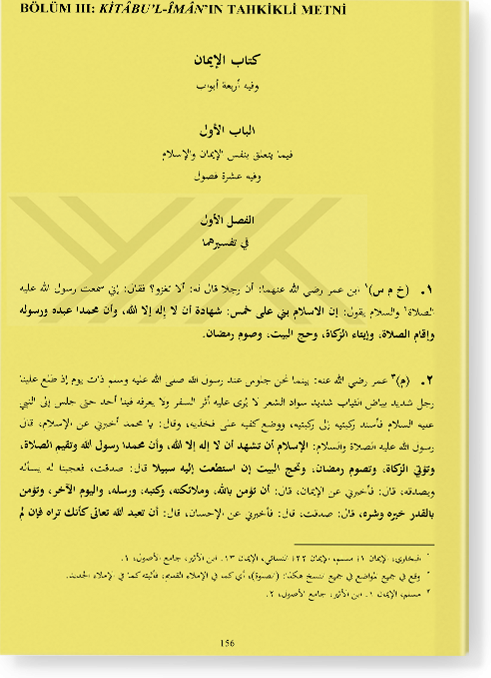 BÖLÜM III: KİTÂBU'L-ÎMÂN'IN TAHKİKLİ METNİ
كتاب الإيمان
وفيه أربعة أبواب
الباب الأول
فيما يتعلق بنفس الإيمان والإسلام
وفيه عشرة فصول
الفصل الأول
في تفسيرهما
١. (خ م س)١ ابن عمر رضي الله عنهما: أن رجلا قال له: ألا تغزو؟ فقال: إني سمعت رسول الله عليه
الصلاة٢ والسلام يقول: إن الاسلام بني على خمس: شهادة أن لا إله إلا الله، وأن محمدا عبده ورسوله
وإقام الصلاة، وإيتاء الزكاة، وحج البيت، وصوم رمضان.
٢. (م)٣ عمر رضي الله عنه: بينما نحن جلوس عند رسول الله صلى الله عليه وسلم ذات يوم إذ طلع علينا
رجل شديد بياض الثياب شديد سواد الشعر لا يُرى عليه أثر السفر ولا يعرفه منا أحد حتى جلس إلى النبي
عليه السلام فأسند ركبتيه إلى ركبتيه، ووضع كفيه على فخذيه، وقال: يا محمد أخبرني عن الإسلام، قال
رسول الله عليه الصلاة والسلام: الإسلام أن تشهد أن لا إله إلا الله، وأن محمدا رسول الله وتقيم الصلاة،
وتؤتي الزكاة، وتصوم رمضان، وتحج البيت إن استطعت إليه سبيلا قال: صدقت، فعجبنا له يسأله
ويصدقه، قال: فأخبرني عن الإيمان، قال: أن تؤمن بالله، وملائكته، وكتبه، ورسله، واليوم الآخر، وتؤمن
بالقدر خيره وشره، قال: صدقت، قال: فأخبرني عن الإحسان، قال: أن تعبد الله تعالى كأنك تراه فإن لم
١ البخاري، الإيمان ١؛ مسلم، الإيمان ٢٢؛ النسائي، الإيمان ١٣. ابن الأثير، جامع الأصول، ١.
٢ وقع في جميع المواضع في جميع النسخ هكذا: (الصلوة)، أي كما في الإملاء القديم، فأثبته كما في الإملاء الحديث.
٣ مسلم، الإيمان ١. ابن الأثير، جامع الأصول، ٢.
156